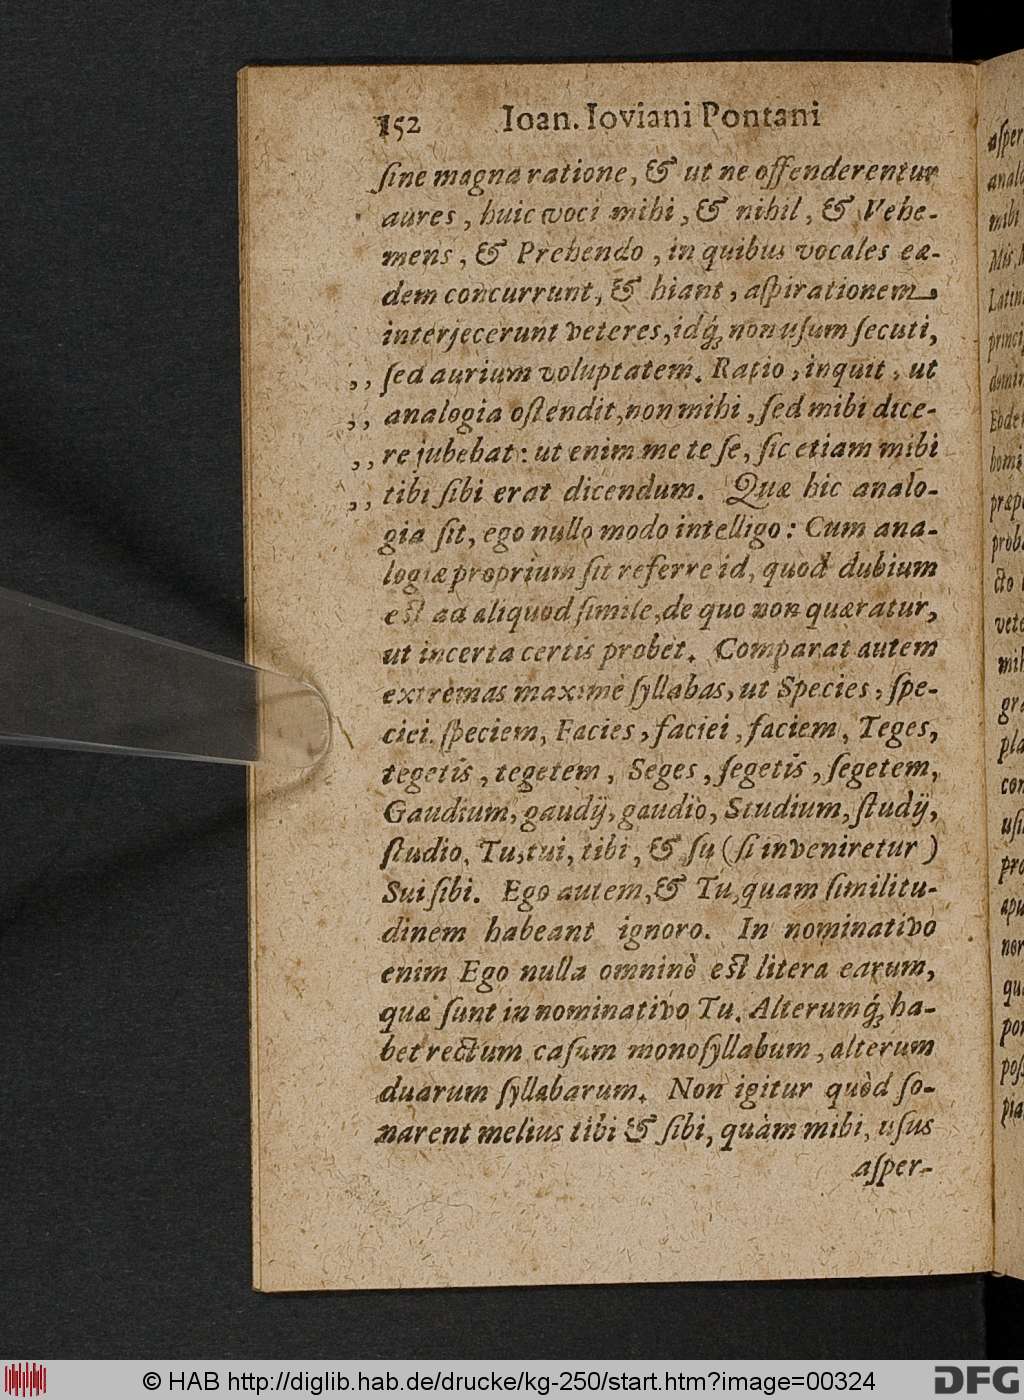 152 Ioan. Ioviani Pontani
sine magna ratione, & ut ne offenderentur
aures, huic voci mihi, & nihil, & Vehe-
mens, & Prehendo, in quibus vocales eæ-
dem concurrunt, & hiant, aspirationem
interjecerunt veteres, idq́ʒ non usum secuti,
,, sed aurium voluptatem. Ratio, inquit, ut
,, analogia ostendit, non mihi, sed mibi dice-
,, re jubebat: ut enim me te se, sic etiam mibi
,, tibi sibi erat dicendum. Quæ hic analo-
gia sit, ego nullo modo intelligo: Cum ana-
logiæ proprium sit referre id, quod dubium
est ad aliquod simile, de quo non quæratur,
ut incerta certis probet. Comparat autem
extremas maximè syllabas, ut Species, spe-
ciei. speciem, Facies, faciei, faciem, Teges,
tegetis, tegetem, Seges, segetis, segetem,
Gaudium, gaudij, gaudio, Studium, studij,
studio, Tu, tui, tibi, & su (si inveniretur)
Sui sibi. Ego autem, & Tu, quam similitu-
dinem habeant ignoro. In nominativo
enim Ego nulla omninò est litera earum,
quæ sunt in nominativo Tu. Alterumq́ʒ ha-
bet rectum casum monosyllabum, alterum
duarum syllabarum. Non igitur quòd so-
narent melius tibi & sibi, quàm mibi, usus
asper-
© HAB http://diglib.hab.de/drucke/kg-250/start.htm?image=00324
DFG